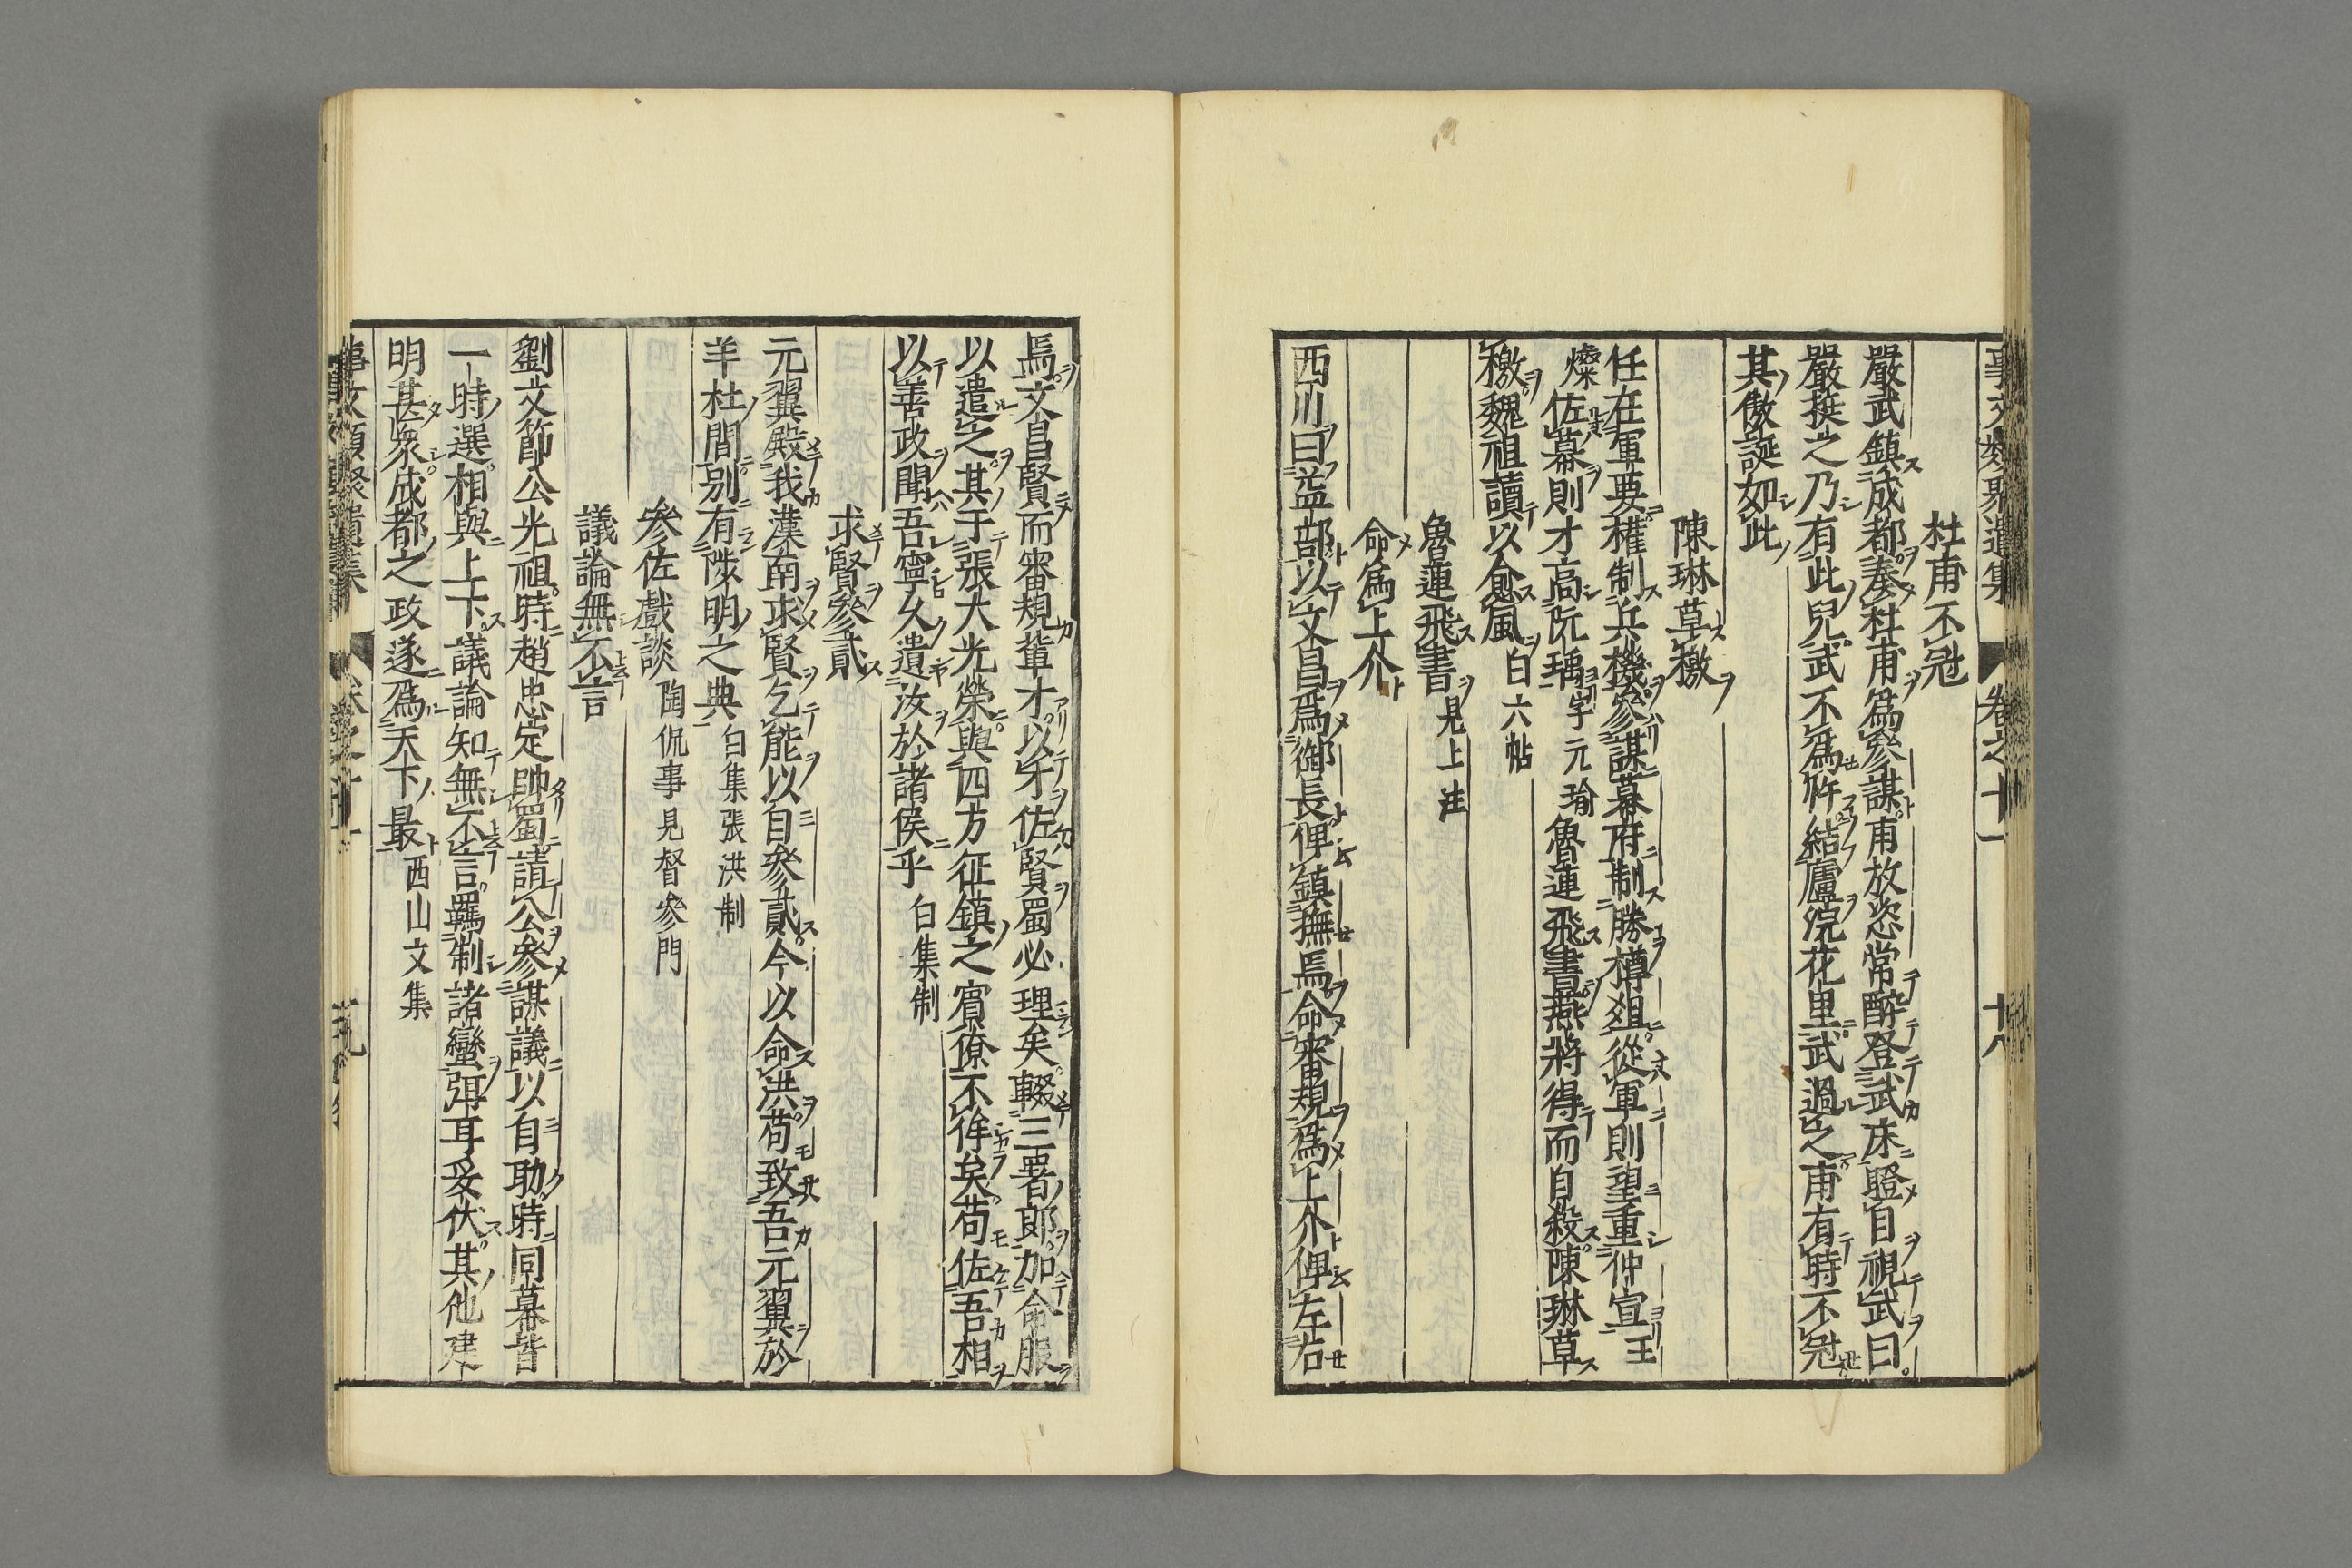 事文類聚遺集 卷之十一 十八
杜甫不冠
嚴武鎮成都奏杜甫爲參謀甫放恣常醉登武床瞪目視武曰
嚴挺之乃有此兒武不爲忤結廬浣花里武過之甫有時不冠
其傲誕如此
陳琳草檄
任在軍要權制兵機參謀幕府制勝樽俎從軍則望重仲宣王
燦佐幕則才高阮瑀字元瑜魯連飛書燕將得而自殺陳琳草
檄魏祖讀以愈風白六帖
魯連飛書見上注
命爲上介
西川曰益部以文昌爲御長俾鎮撫焉命審規爲上介俾左右
焉文昌賢而審規輩才以才佐賢蜀必理矣輟三署郎加命服
以遣之其于張大光榮與四方征鎮之賓僚不侔矣苟佐吾相
以善政聞吾寧久遺汝於諸侯乎白集制
求賢參貳
元翼殿我漢南求賢乞能以自參貳今以命洪苟致吾元翼於
羊杜間別有陟明之典白集張洪制
參佐戲談陶侃事見督參門
議論無不言
劉文節公光祖時趙忠定帥蜀請公參謀議以自助時同幕皆
一時選相與上下議論知無不言羈制諸蠻弭耳妥伏其他建
明甚衆成都之政遂爲天下最西山文集